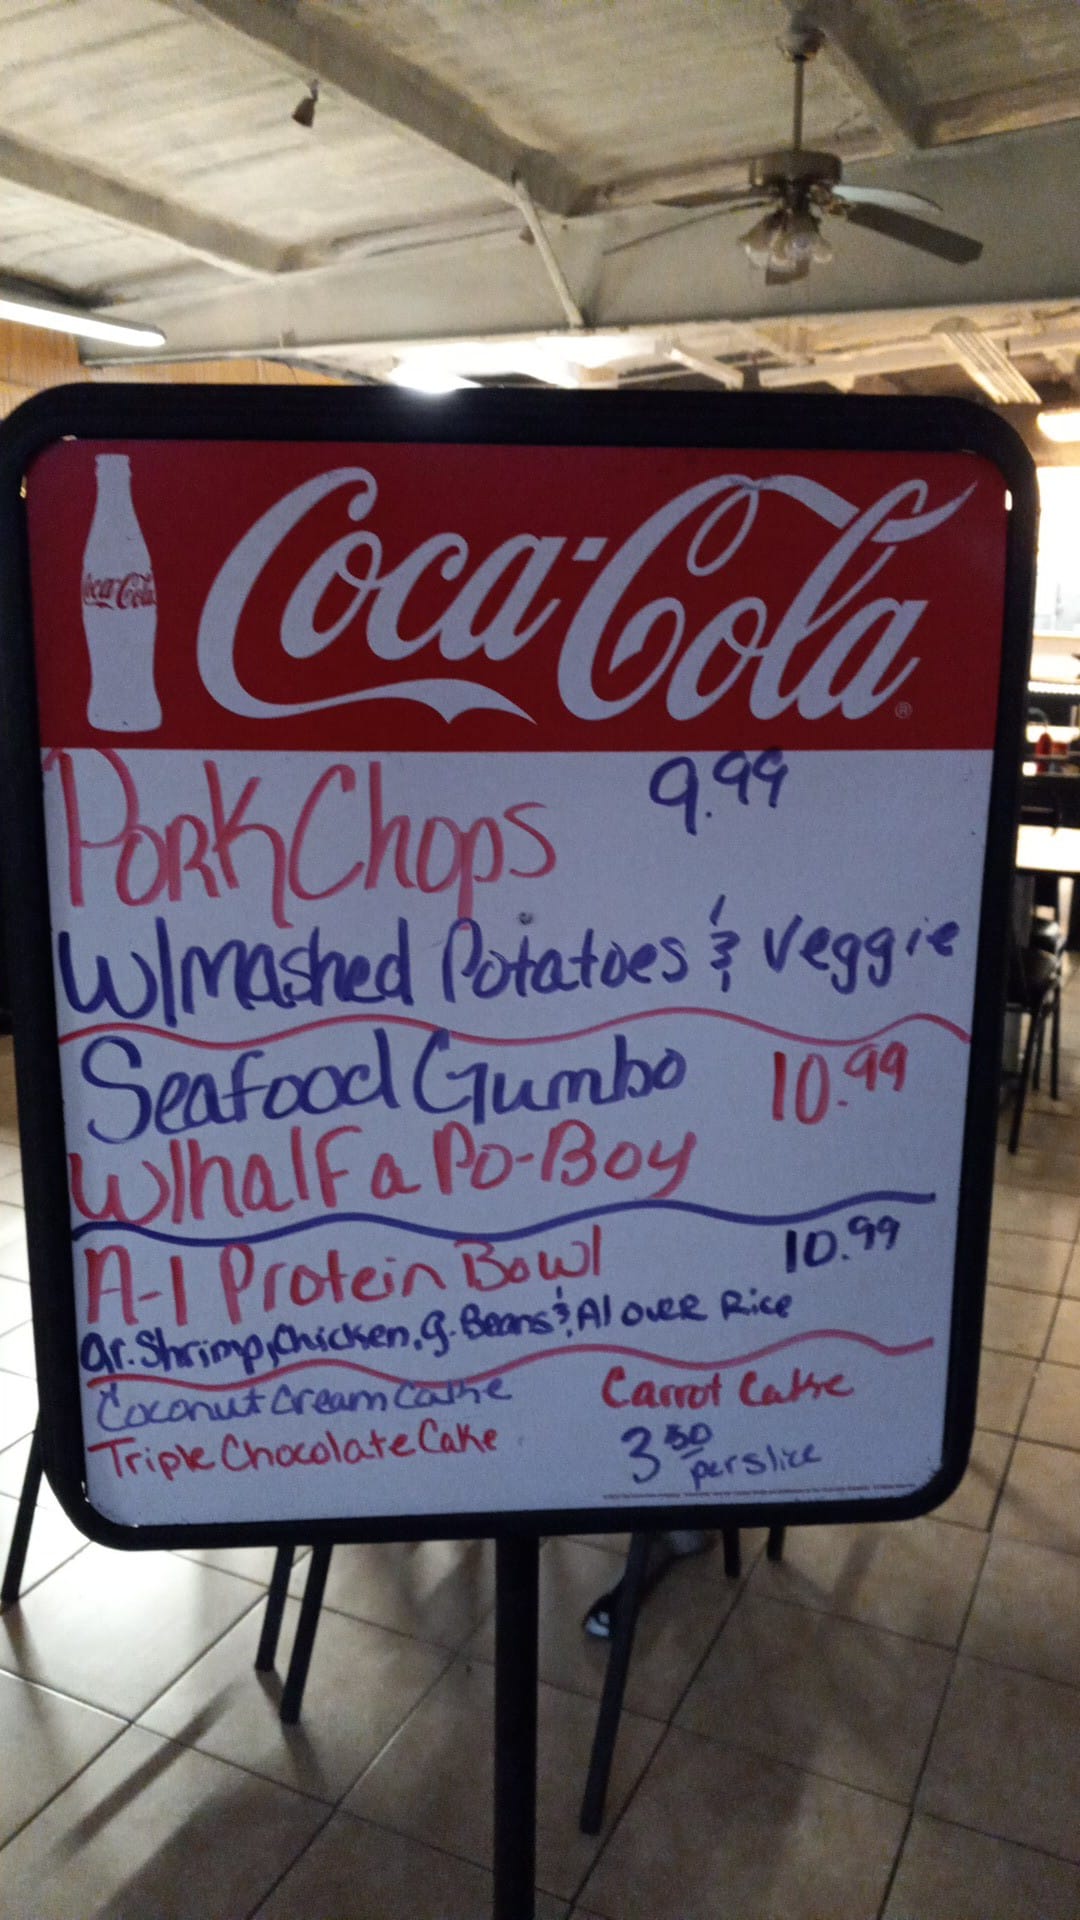 Coca-Cola
Coca-Cola®
Pork Chops 9.99
W/Mashed Potatoes & Veggie
Seafood Gumbo 10.99
W/half a Po-Boy
A-1 Protein Bowl 10.99
Gr. Shrimp, Chicken, g. Beans & A1 over Rice
Coconut Cream Cake Carrot Cake
Triple Chocolate Cake 3 50 per slice